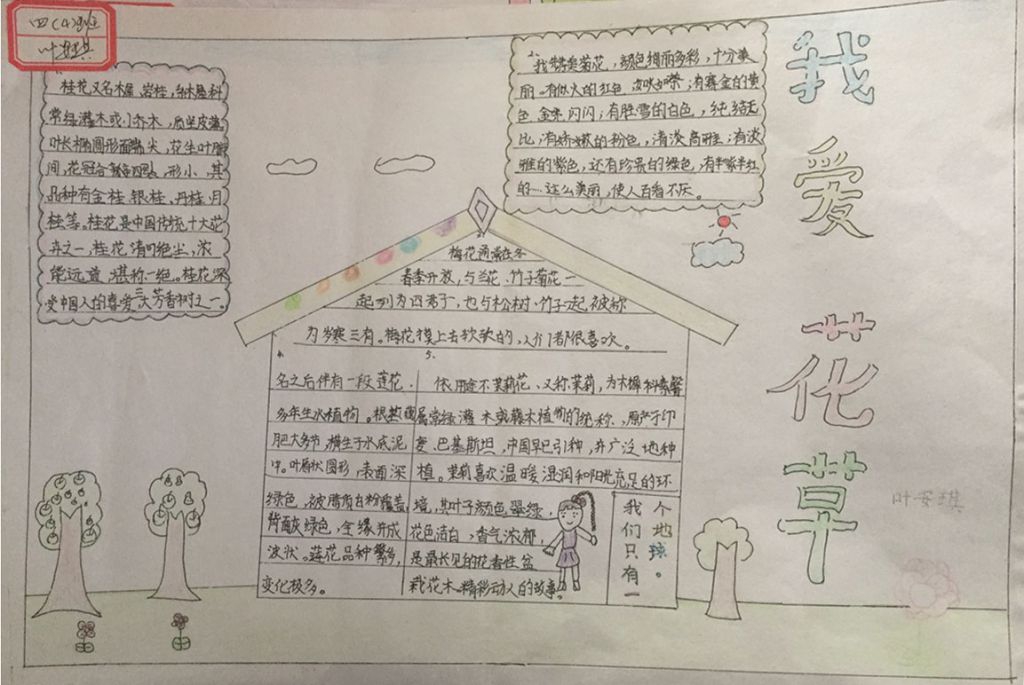 四(4)班
叶安琪
我爱花草
叶安琪
桂花又名木樨、岩桂,系木犀科
常绿灌木或小乔木,质坚皮薄,
叶长椭圆形面端尖,花生叶腋
间,花冠合瓣四裂,形小,其
品种有金桂、银桂、丹桂、月
桂等。桂花是中国传统十大花
卉之一,桂花清可绝尘,浓
能远溢,堪称一绝。桂花深
受中国人的喜爱三大芳香树之一
2、
我特别喜爱菊花,颜色绚丽多彩,十分美
丽。有似火的红色,
有赛金的黄
色,金光闪闪;有胜雪的白色,纯结无
比;有娇嫩的粉色,清淡高雅;有淡
雅的紫色,还有珍贵的绿色,有半紫半红
的…这么美丽,使人百看不厌。
3、
梅花通常在冬
春季开放,与兰花、竹子菊花一
起列为四君子,也与松树、竹子一起被称
为岁寒三有。梅花摸上去软软的,人们都很喜欢。
4、
名之后伴有一段莲花,
多年生水植物。根茎
肥大多节,横生于水底泥
中。叶盾状圆形,表面深
绿色,被腊质白粉覆盖
背面灰绿色,全缘并成
波状。莲花品种繁多,
变化极多。
5、
依用途不茉莉花、又称茉莉,为木樨科素馨
属常绿灌木或藤木植物的统称,原产于印
度、巴基斯坦,中国早已引种,并广泛地种
植。茉莉喜欢温暖湿润和阳光充足的环
境,其叶子颜色翠绿,
花色洁白,香气浓郁,
是最长见的花香性盆
栽花木。精彩动人的故事。
我们只有一
个地球。